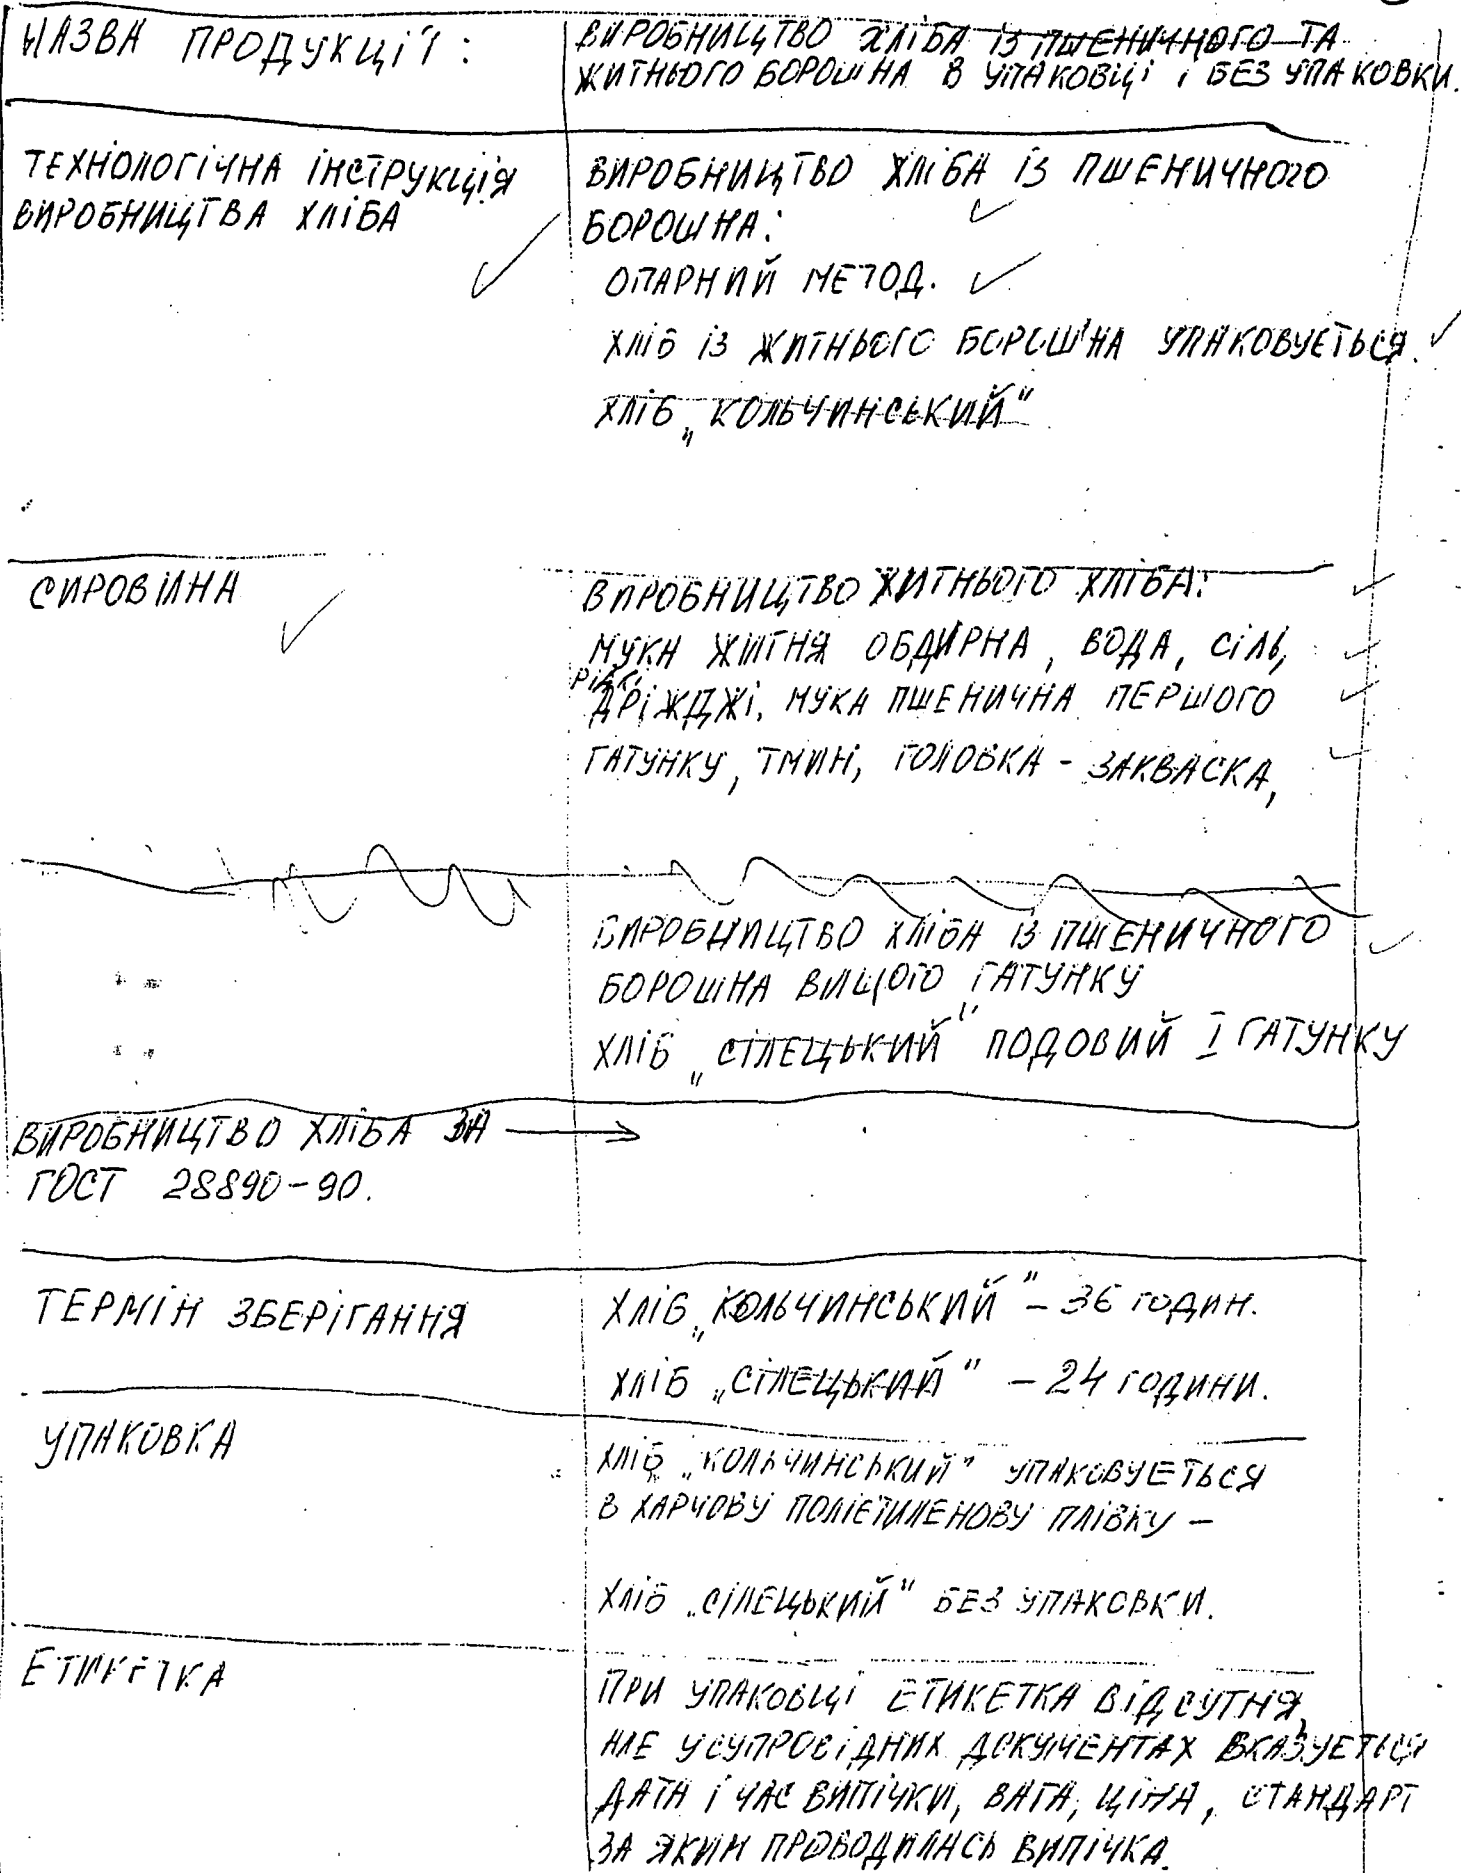 НАЗВА ПРОДУКЦІЇ:
ВИРОБНИЦТВО ХЛІБА ІЗ ПШЕНИЧНОГО ТА
ЖИТНЬОГО БОРОШНА В УПАКОВЦІ І БЕЗ УПАКОВКИ.
ТЕХНОЛОГІЧНА ІНСТРУКЦІЯ
ВИРОБНИЦТВА ХЛІБА
ВИРОБНИЦТВО ХЛІБА ІЗ ПШЕНИЧНОГО
БОРОШНА:
ОПАРНИЙ МЕТОД.
ХЛІБ ІЗ ЖИТНЬОГО БОРОШНА УПАКОВУЄТЬСЯ.
ХЛІБ „КОЛЬЧИНСЬКИЙ"
СИРОВИНА
ВИРОБНИЦТВО ЖИТНЬОГО ХЛІБА:
МУКА ЖИТНЯ ОБДИРНА, ВОДА, СІЛЬ,
ДРІЖДЖІ, МУКА ПШЕНИЧНА ПЕРШОГО
ГАТУНКУ, ТМИН, ГОЛОВКА - ЗАКВАСКА,
ВИРОБНИЦТВО ХЛІБА ІЗ ПШЕНИЧНОГО
БОРОШНА ВИЩОГО ГАТУНКУ
ХЛІБ „СІЛЕЦЬКИЙ" ПОДОВИЙ I ГАТУНКУ
ВИРОБНИЦТВО ХЛІБА ЗА →
ГОСТ 28890-90.
ТЕРМІН ЗБЕРІГАННЯ
ХЛІБ „КОЛЬЧИНСЬКИЙ" - 36 ГОДИН.
ХЛІБ „СІЛЕЦЬКИЙ" - 24 ГОДИНИ.
УПАКОВКА
ХЛІБ „КОЛЬЧИНСЬКИЙ" УПАКОВУЄТЬСЯ
В ХАРЧОВУ ПОЛІЕТИЛЕНОВУ ПЛІВКУ -
ХЛІБ „СІЛЕЦЬКИЙ" БЕЗ УПАКОВКИ.
ЕТИКЕТКА
ПРИ УПАКОВЦІ ЕТИКЕТКА ВІДСУТНЯ,
АЛЕ У СУПРОВІДНИХ ДОКУМЕНТАХ ВКАЗУЄТЬСЯ
ДАТА І ЧАС ВИПІЧКИ, ВАГА, ЦІНА, СТАНДАРТ
ЗА ЯКИМ ПРОВОДИЛАСЬ ВИПІЧКА.